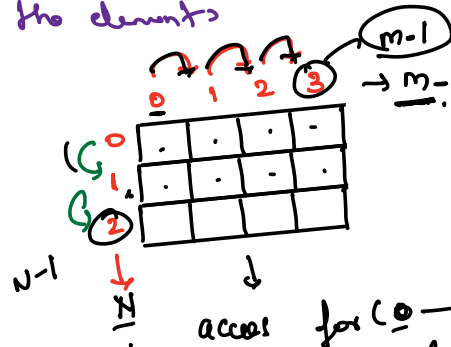 the elements
m-1
0 1 2 3 → m-
0
1
2
N-1
N
access for (0 —